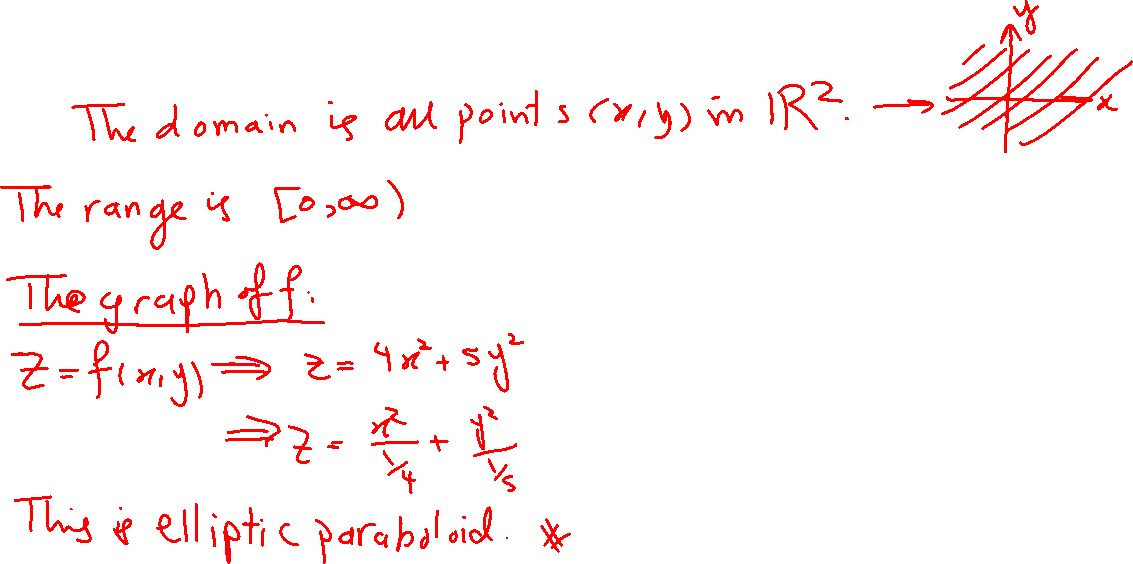 The domain is all points (x,y) in ℝ². → y x
The range is [0,∞)
The graph of f.
Z = f(x,y) ⇒ z = 4x² + 5y²
⇒ z = x²/(1/4) + y²/(1/5)
This is elliptic paraboloid. *